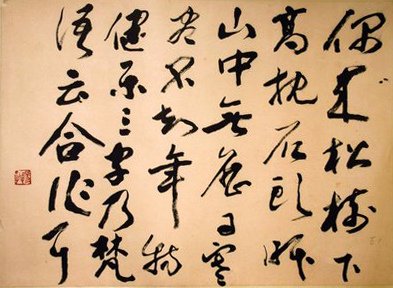 偶來松樹下
高枕石頭眠
山中無歷日寒
盡不知年特
健藥三字乃梵
語云合作耳